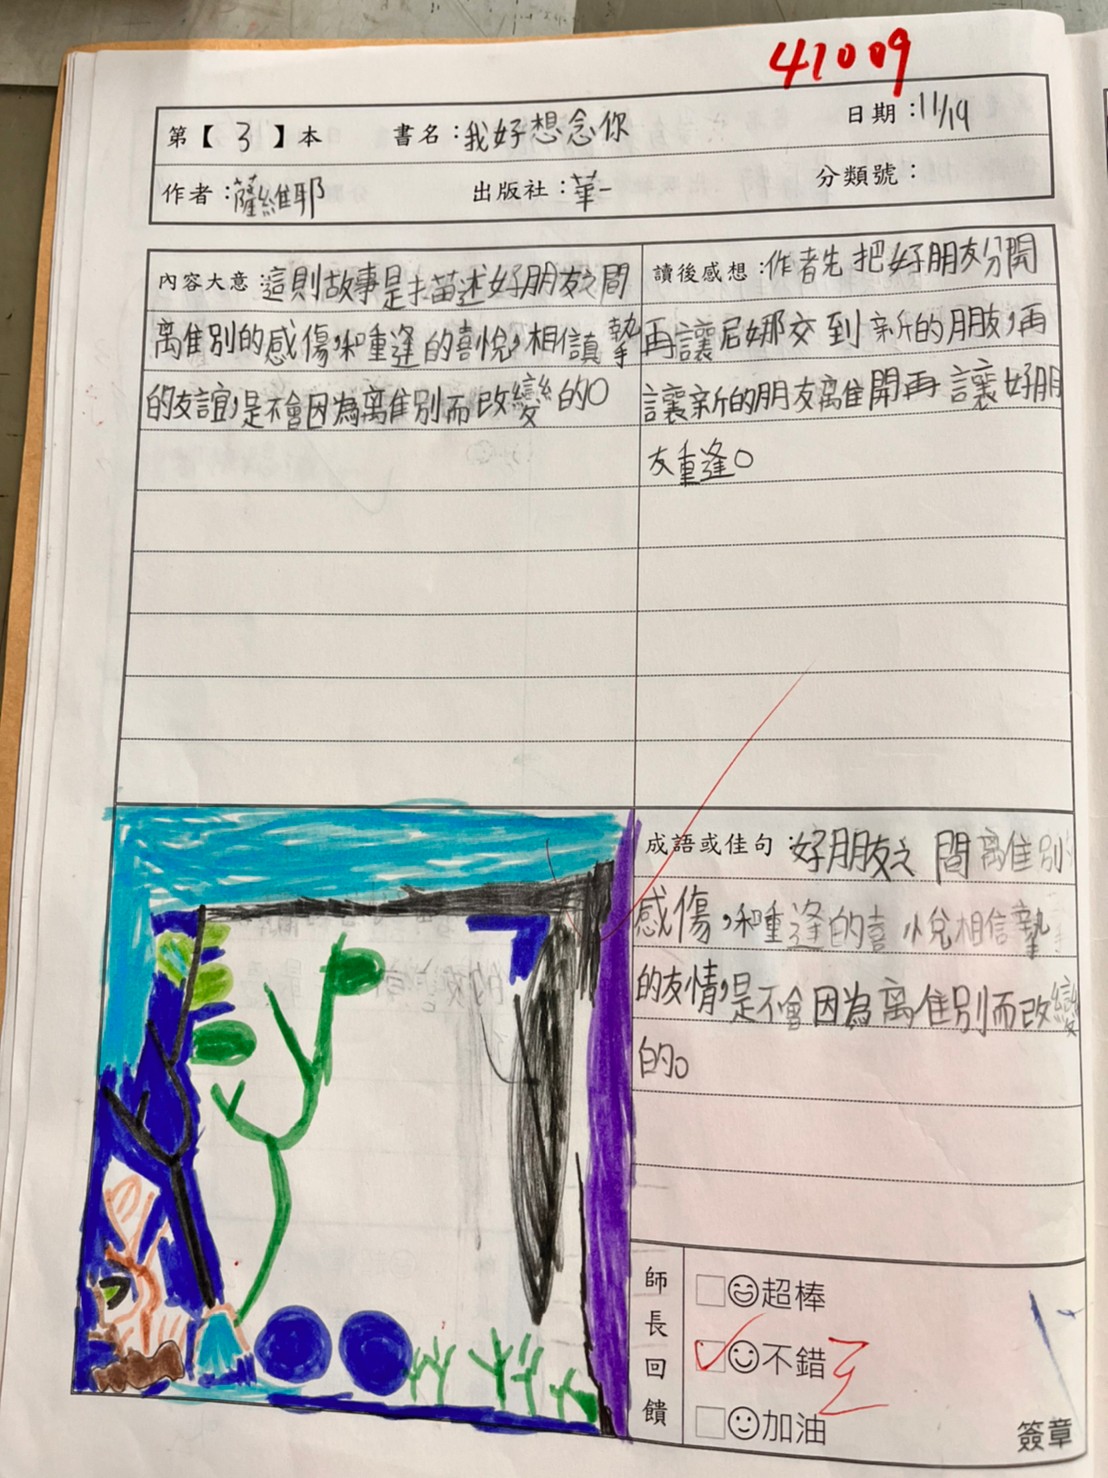 41009
第【 3 】本 書名：我好想念你 日期：11/19
作者：薩維耶 出版社：華一 分類號：
內容大意：這則故事是描述好朋友之間
離別的感傷，和重逢的喜悅，相信真摯
的友誼，是不會因為離別而改變的。
讀後感想：作者先把好朋友分開
再讓尼娜交到新的朋友，再
讓新的朋友離開再讓好朋
友重逢。
成語或佳句：好朋友之間離別的
感傷，和重逢的喜悅相信摯
的友情，是不會因為離別而改變
的。
師長回饋
超棒
不錯
加油
簽章